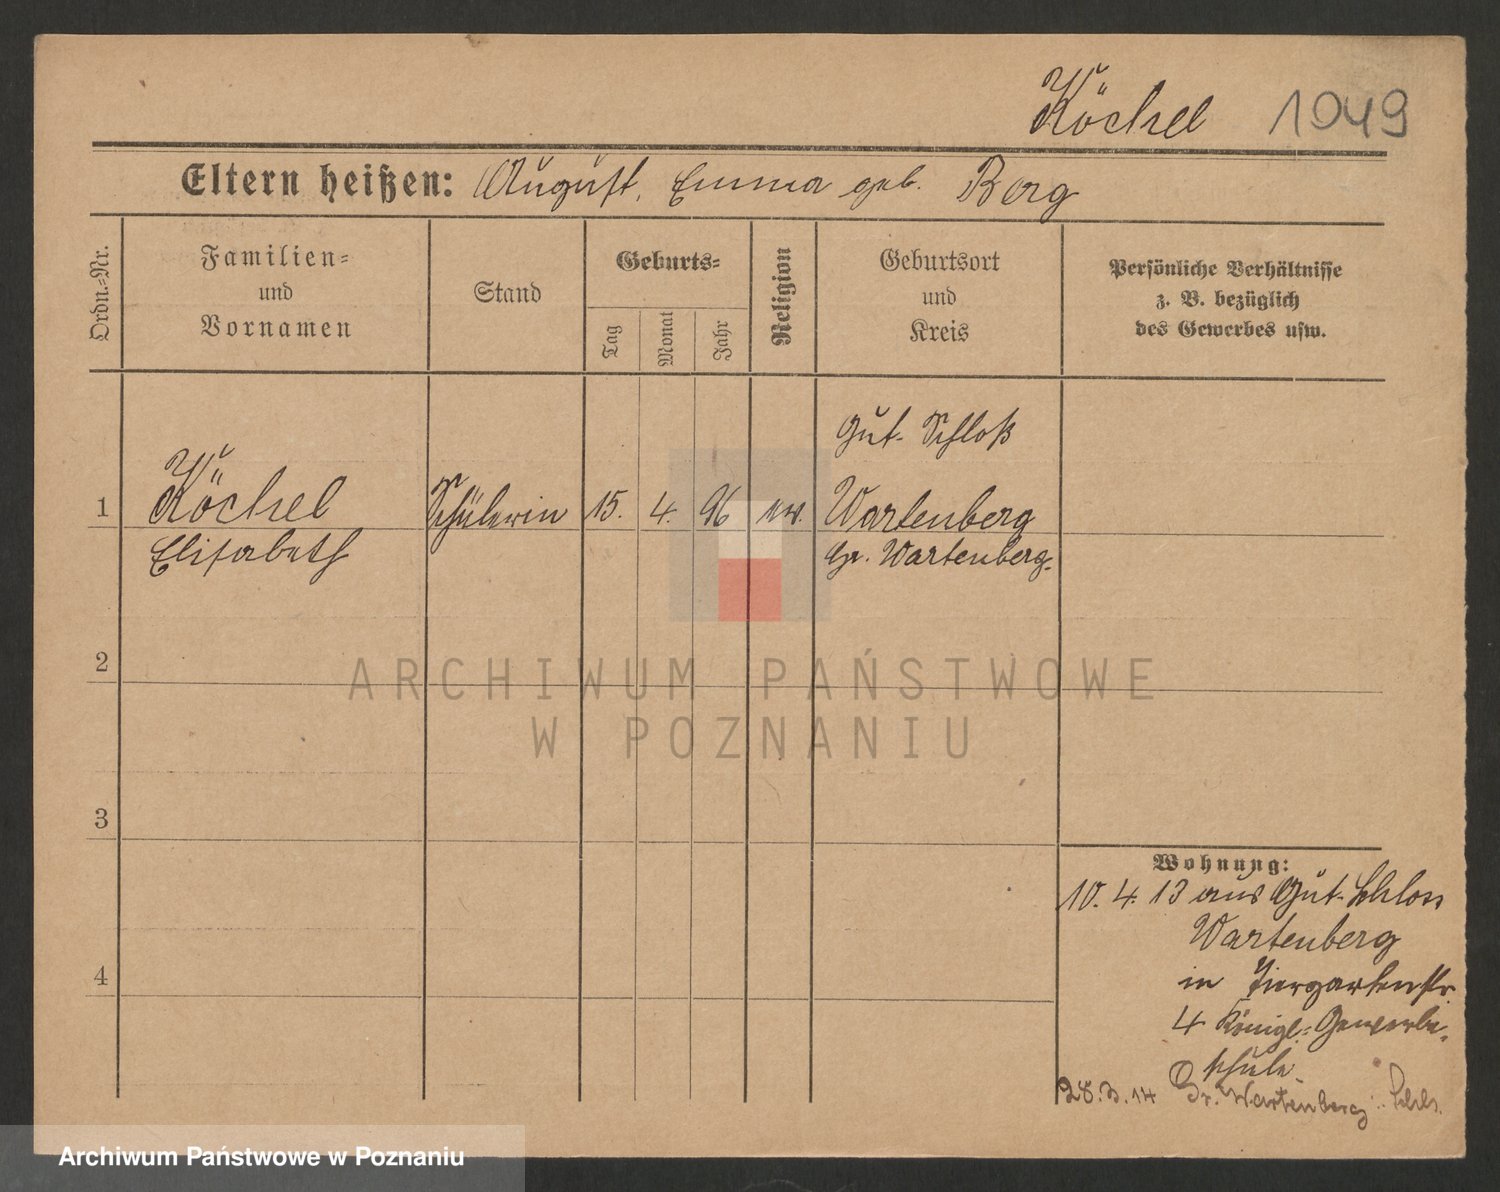 Köchel 1049
Eltern heißen: August, Emma geb. Berg
Ordn.-Nr.
Familien-
und
Vornamen
Stand
Geburts-
Tag
Monat
Jahr
Religion
Geburtsort
und
Kreis
Persönliche Verhältnisse
z. B. bezüglich
des Gewerbes usw.
Gut-Schloß
1 Köchel Schülerin 15. 4. 96 ev. Wartenberg
Elisabeth Gr. Wartenberg.
2
ARCHIWUM PAŃSTWOWE
W POZNANIU
3
Wohnung:
10. 4. 13 aus Gut-Schloss
Wartenberg
4
in Tiergartenstr.
4 Königl. Gewerbe-
schule
28.3.14 Gr. Wartenberg
Archiwum Państwowe w Poznaniu